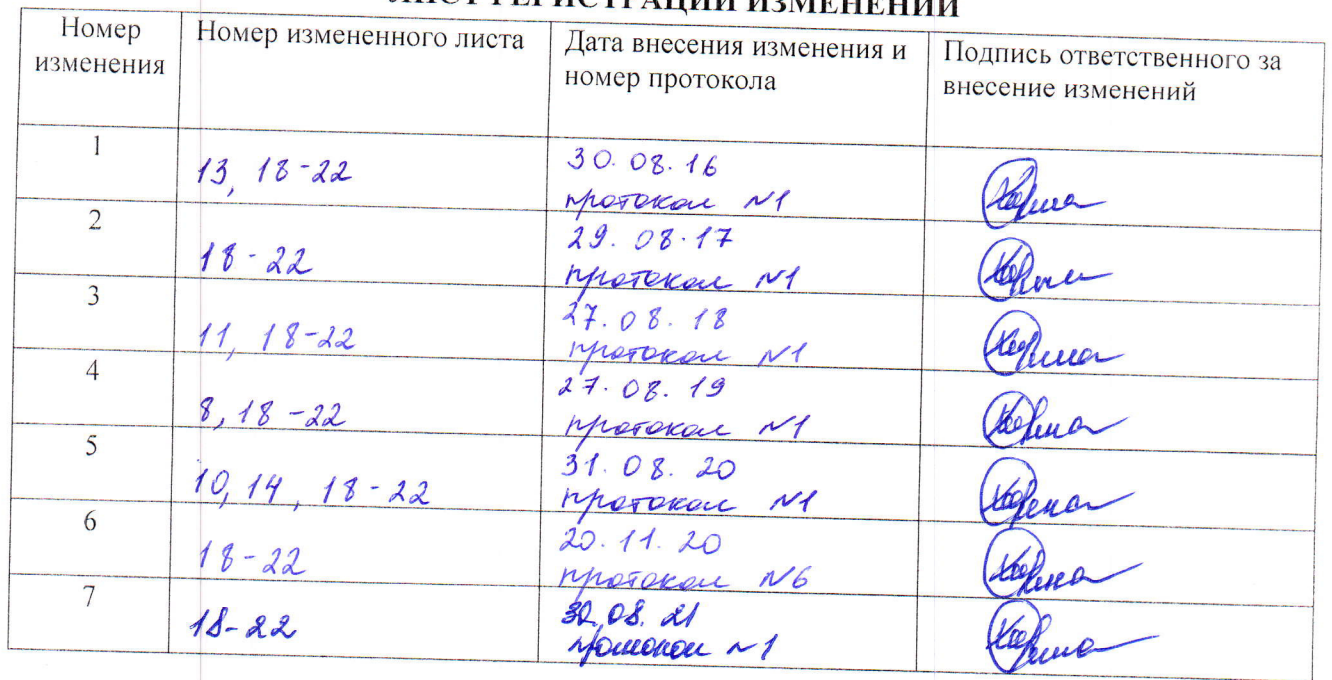 ЛИСТ РЕГИСТРАЦИИ ИЗМЕНЕНИЙ
Номер изменения
Номер измененного листа
Дата внесения изменения и номер протокола
Подпись ответственного за внесение изменений
1
13, 18-22
30.08.16
протокол №1
2
18-22
29.08.17
протокол №1
3
11, 18-22
27.08.18
протокол №1
4
8, 18-22
27.08.19
протокол №1
5
10, 14, 18-22
31.08.20
протокол №1
6
18-22
20.11.20
протокол №6
7
18-22
30.08.21
протокол №1